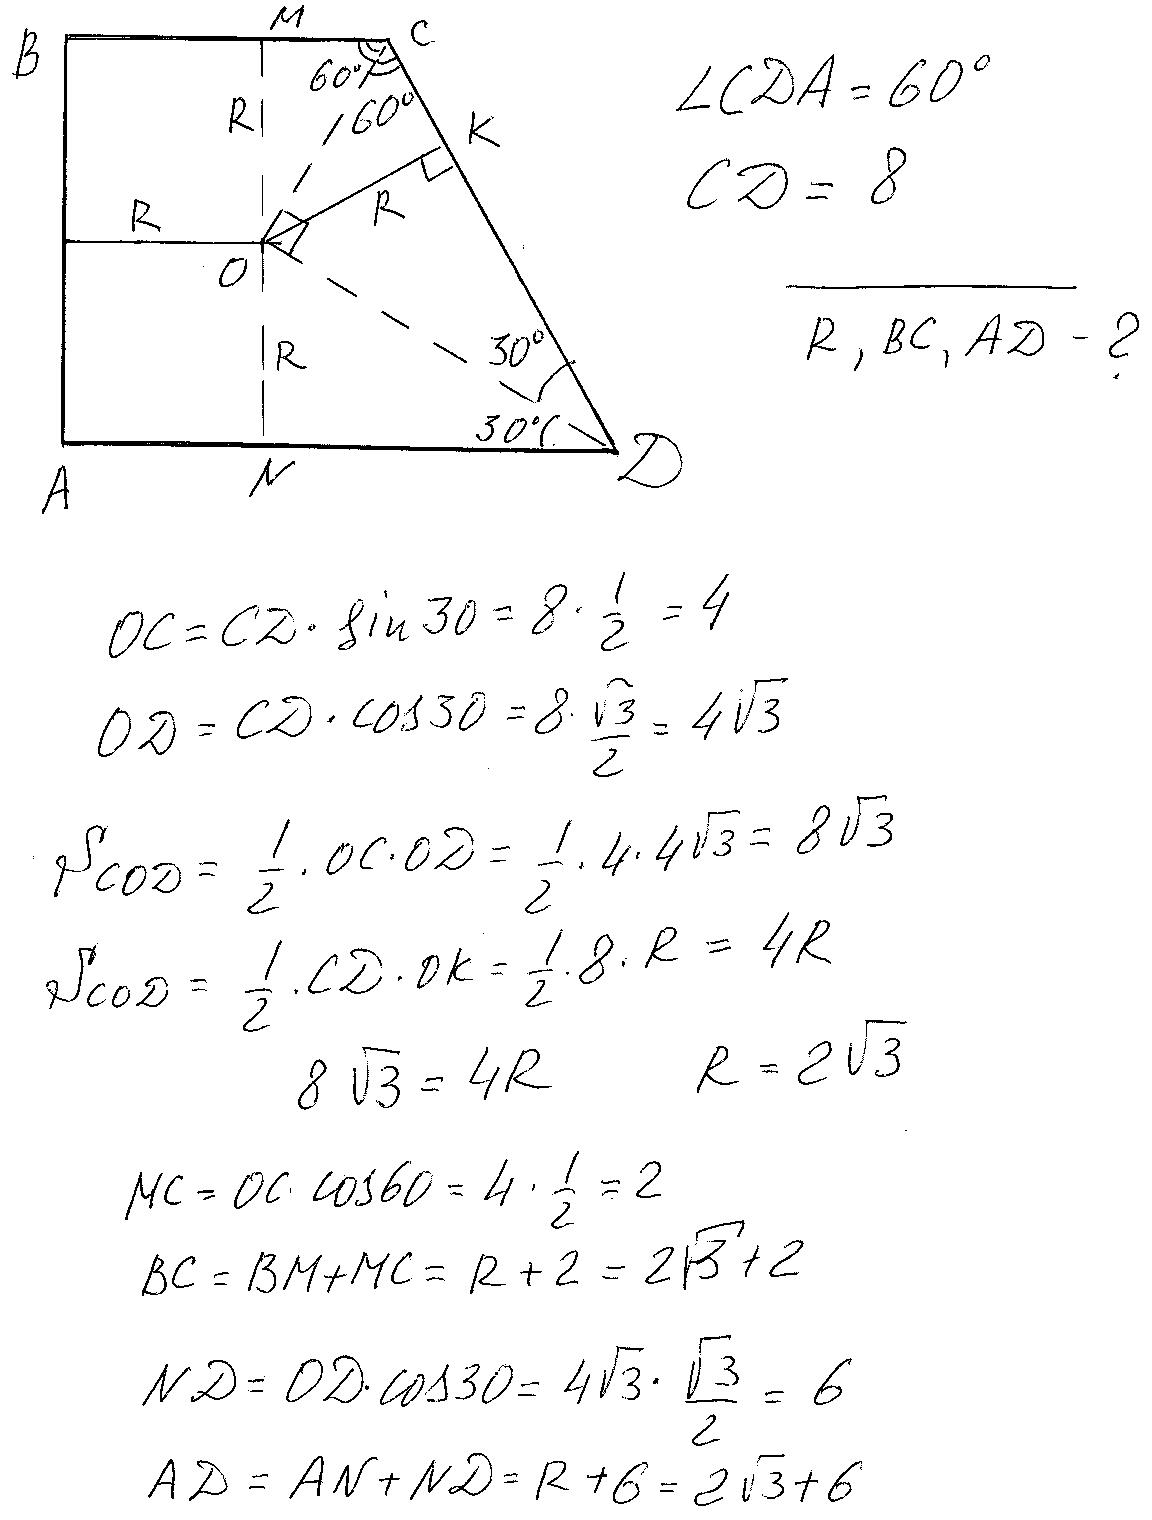 M
B
C
60°
60°
R
K
R
R
O
R
30°
30°
A
N
D
∠CDA = 60°
CD = 8
R, BC, AD - ?
OC = CD · sin 30 = 8 · 1/2 = 4
OD = CD · cos 30 = 8 · √3/2 = 4√3
S_COD = 1/2 · OC · OD = 1/2 · 4 · 4√3 = 8√3
S_COD = 1/2 · CD · OK = 1/2 · 8 · R = 4R
8√3 = 4R R = 2√3
MC = OC · cos 60 = 4 · 1/2 = 2
BC = BM + MC = R + 2 = 2√3 + 2
ND = OD · cos 30 = 4√3 · √3/2 = 6
AD = AN + ND = R + 6 = 2√3 + 6